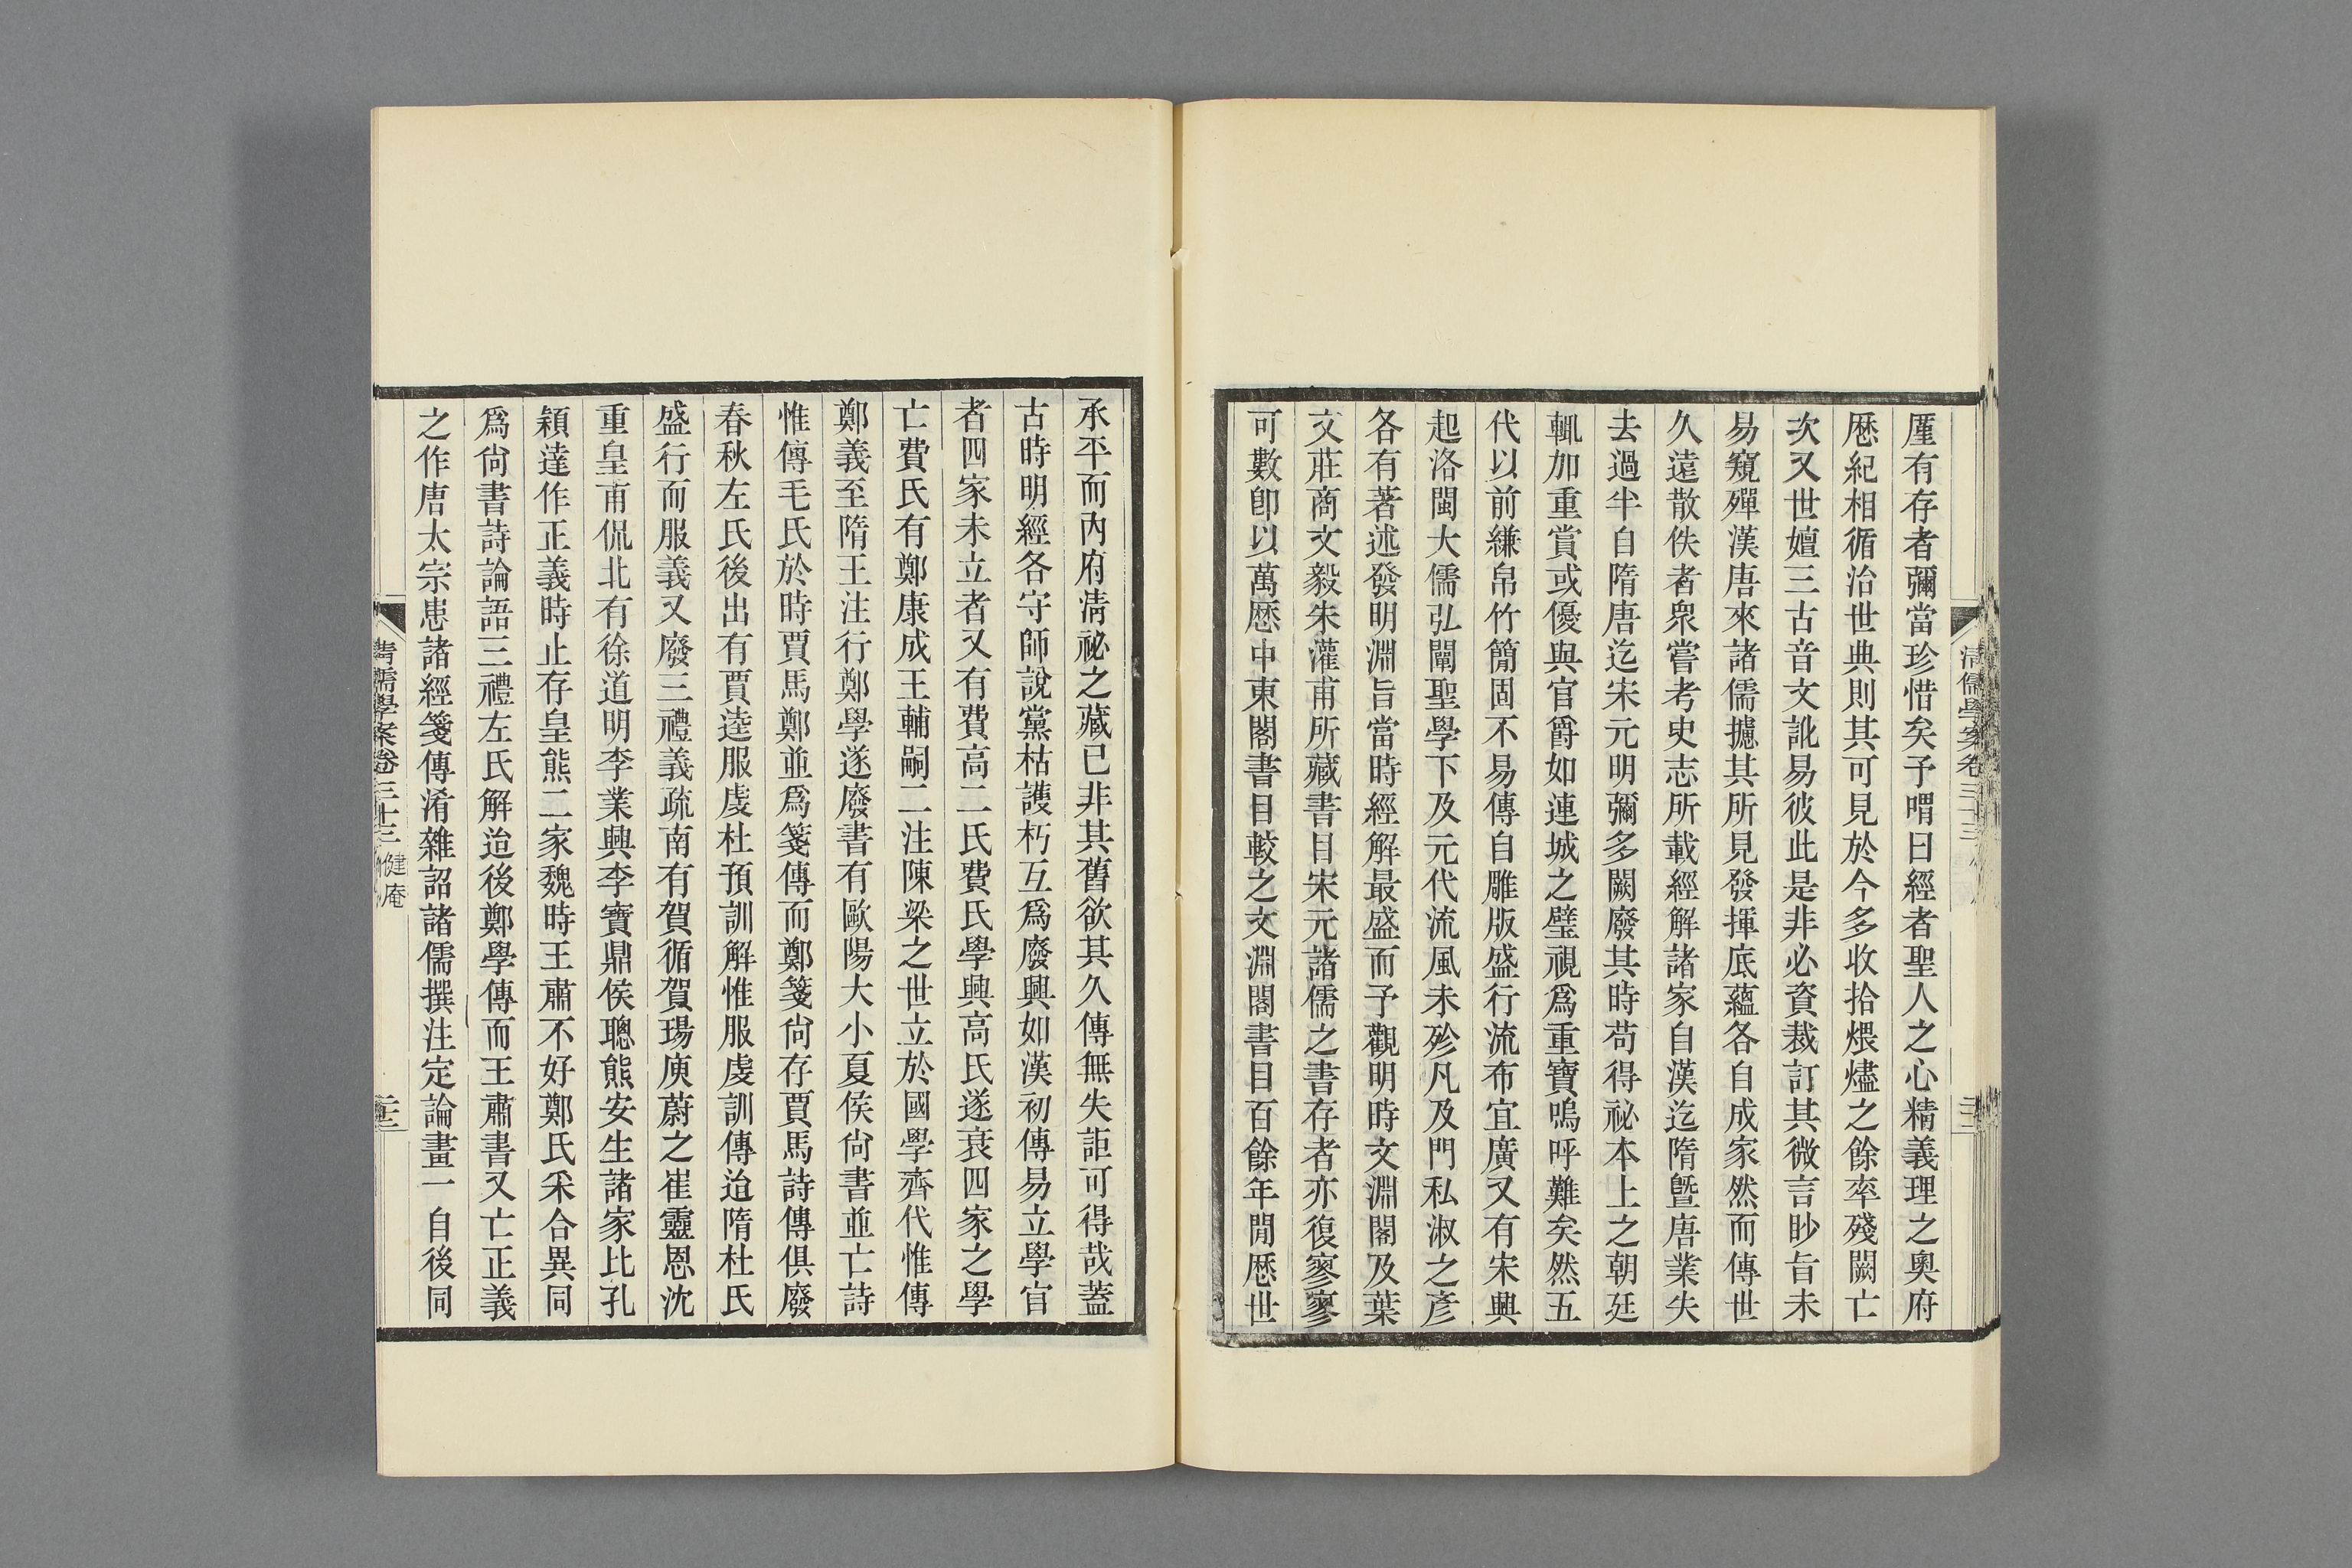 厪有存者彌當珍惜矣予喟曰經者聖人之心精義理之奧府
厯紀相循治世典則其可見於今多收拾煨燼之餘率殘闕亡
次又世嬗三古音文訛易彼此是非必資裁訂其微言眇旨未
易窺殫漢唐來諸儒攄其所見發揮底蘊各自成家然而傳世
久遠散佚者衆嘗考史志所載經解諸家自漢迄隋曁唐業失
去過半自隋唐迄宋元明彌多闕廢其時苟得祕本上之朝廷
輒加重賞或優與官爵如連城之璧視爲重寶嗚呼難矣然五
代以前縑帛竹簡固不易傳自雕版盛行流布宜廣又有宋興
起洛閩大儒弘闡聖學下及元代流風未殄凡及門私淑之彥
各有著述發明淵旨當時經解最盛而予觀明時文淵閣及葉
文莊商文毅朱灌甫所藏書目宋元諸儒之書存者亦復寥寥
可數卽以萬厯中東閣書目較之文淵閣書目百餘年閒厯世
清儒學案卷三十三
承平而內府淸祕之藏已非其舊欲其久傳無失詎可得哉蓋
古時明經各守師說黨枯護朽互爲廢興如漢初傳易立學官
者四家未立者又有費高二氏費氏學興高氏遂衰四家之學
亡費氏有鄭康成王輔嗣二注陳梁之世立於國學齊代惟傳
鄭義至隋王注行鄭學遂廢書有歐陽大小夏侯尙書並亡詩
惟傳毛氏於時賈馬鄭並爲箋傳而鄭箋尙存賈馬詩傳俱廢
春秋左氏後出有賈逵服虔杜預訓解惟服虔訓傳迨隋杜氏
盛行而服義又廢三禮義疏南有賀循賀瑒庾蔚之崔靈恩沈
重皇甫侃北有徐道明李業興李寶鼎侯聰熊安生諸家比孔
穎達作正義時止存皇熊二家魏時王肅不好鄭氏采合異同
爲尙書詩論語三禮左氏解迨後鄭學傳而王肅書又亡正義
之作唐太宗患諸經箋傳淆雜詔諸儒撰注定論畫一自後同
清儒學案卷三十三 健庵